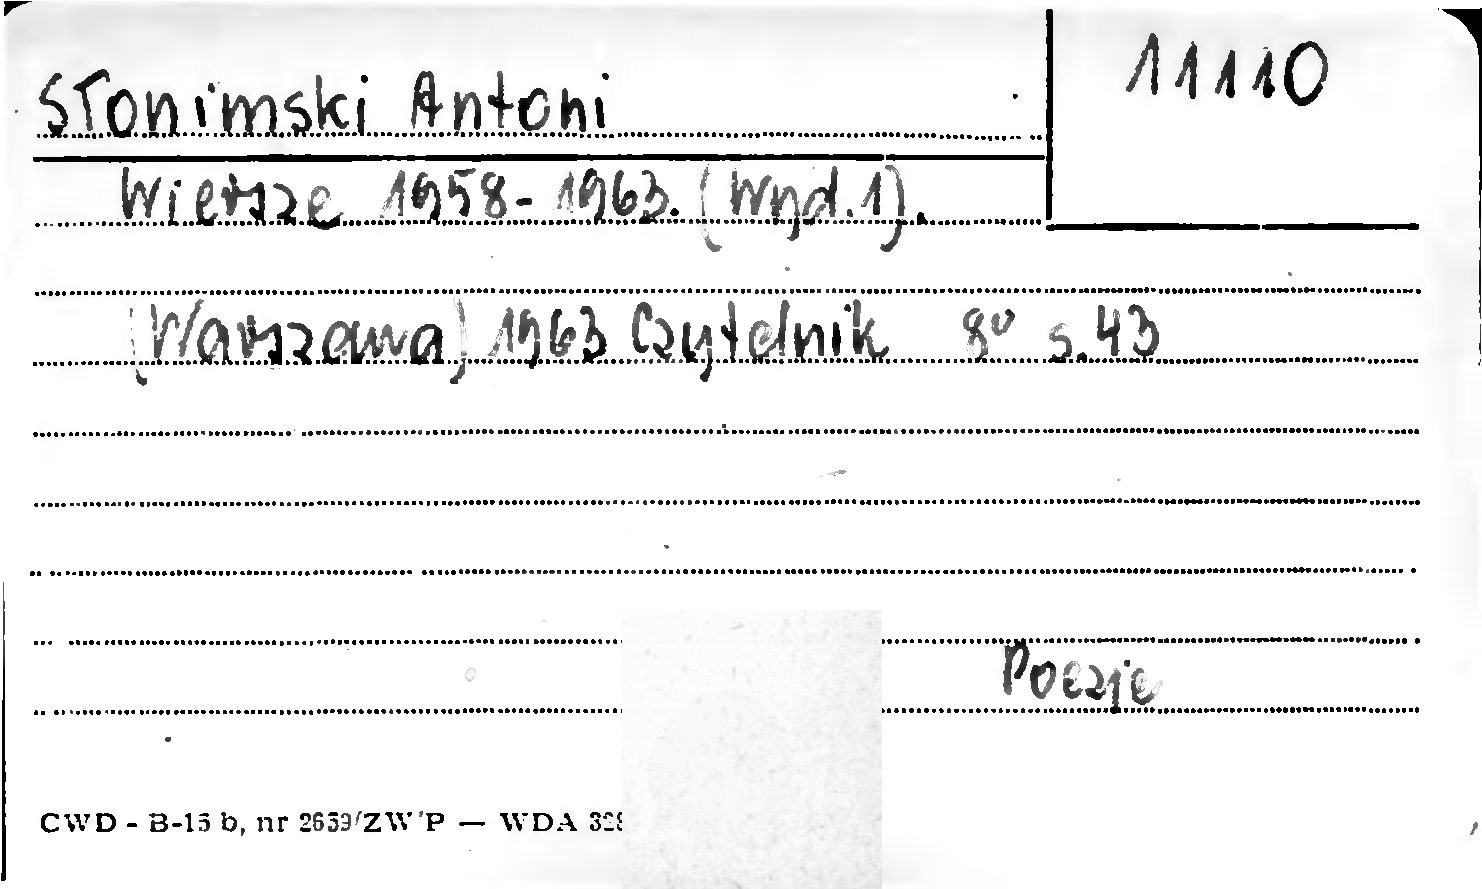 Słonimski Antoni
11110
Wiersze 1958-1963. (Wyd.1).
(Warszawa) 1963 Czytelnik 8° s.43
Poezje
CWD - B-15 b, nr 2659/ZW"P — WDA 328